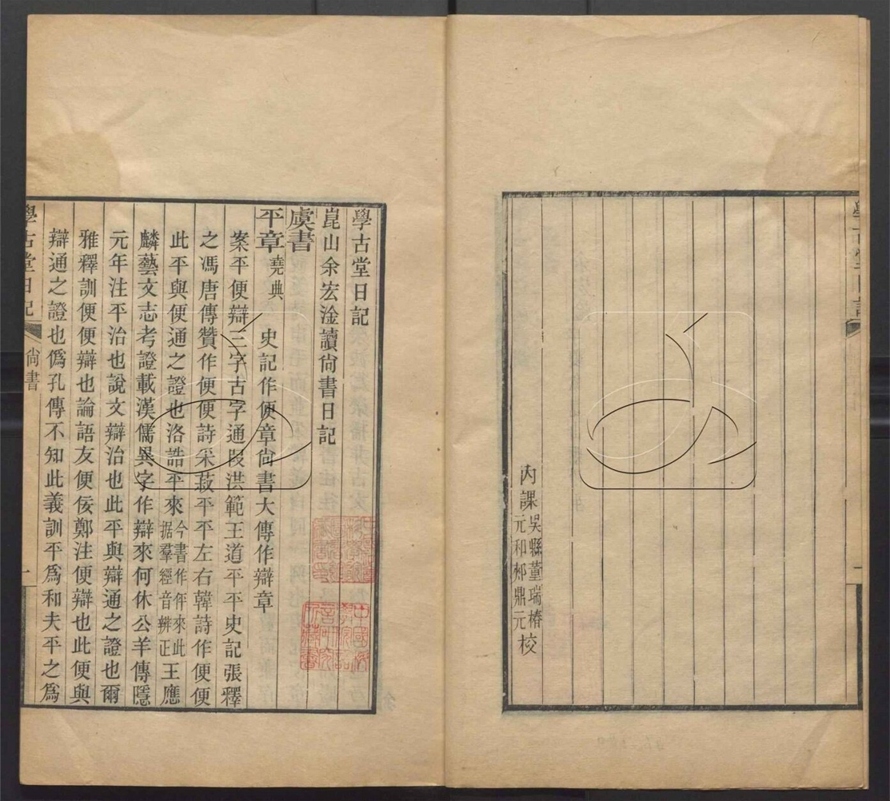 內課吳縣董瑞椿
元和郟鼎元校
學古堂日記
崑山余宏淦讀尙書日記
虞書
平章堯典 史記作便章尙書大傳作辯章
案平便辯三字古字通叚洪範王道平平史記張釋
之馮唐傳贊作便便詩采菽平平左右韓詩作便便
此平與便通之證也洛誥平來今書作伻來此据羣經音辨正王應
麟藝文志考證載漢儒異字作辯來何休公羊傳隱
元年注平治也說文辯治也此平與辯通之證也爾
雅釋訓便便辯也論語友便佞鄭注便辯也此便與
辯通之證也僞孔傳不知此義訓平爲和夫平之爲
學古堂日記 尙書 一